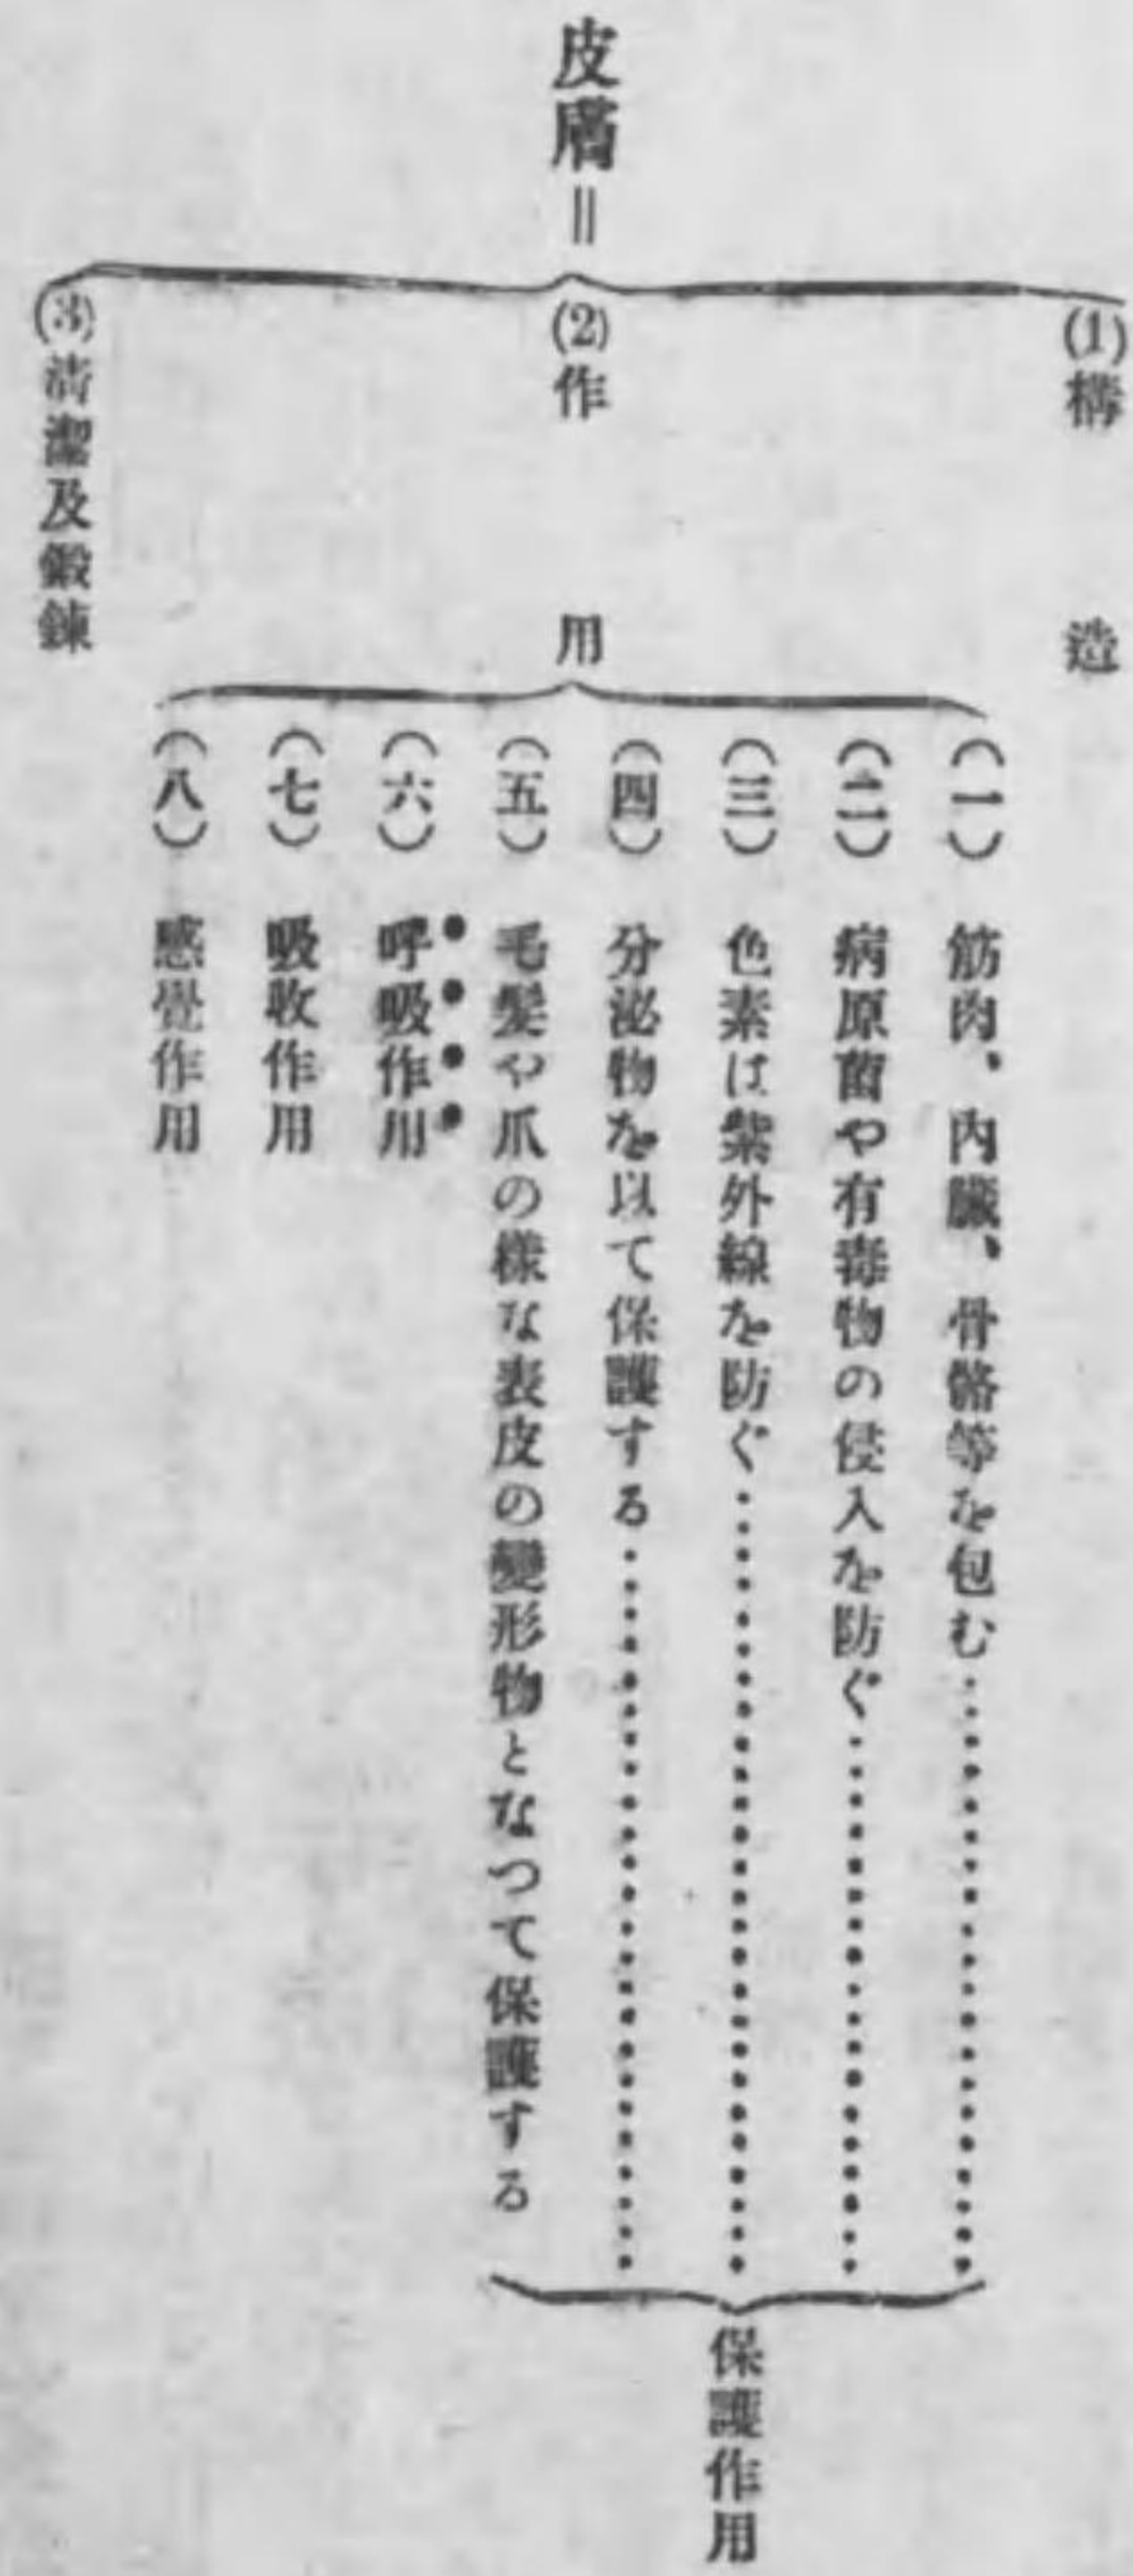 皮膚＝
(1)構造
(2)作用
(一)筋肉、內臟、骨骼等を包む……………………
(二)病原菌や有毒物の侵入を防ぐ……………………
(三)色素は紫外線を防ぐ……………………
(四)分泌物を以て保護する……………………
(五)毛髮や爪の樣な表皮の變形物となつて保護する
保護作用
(六)呼吸作用
(七)吸收作用
(八)感覺作用
(3)淸潔及鍛鍊